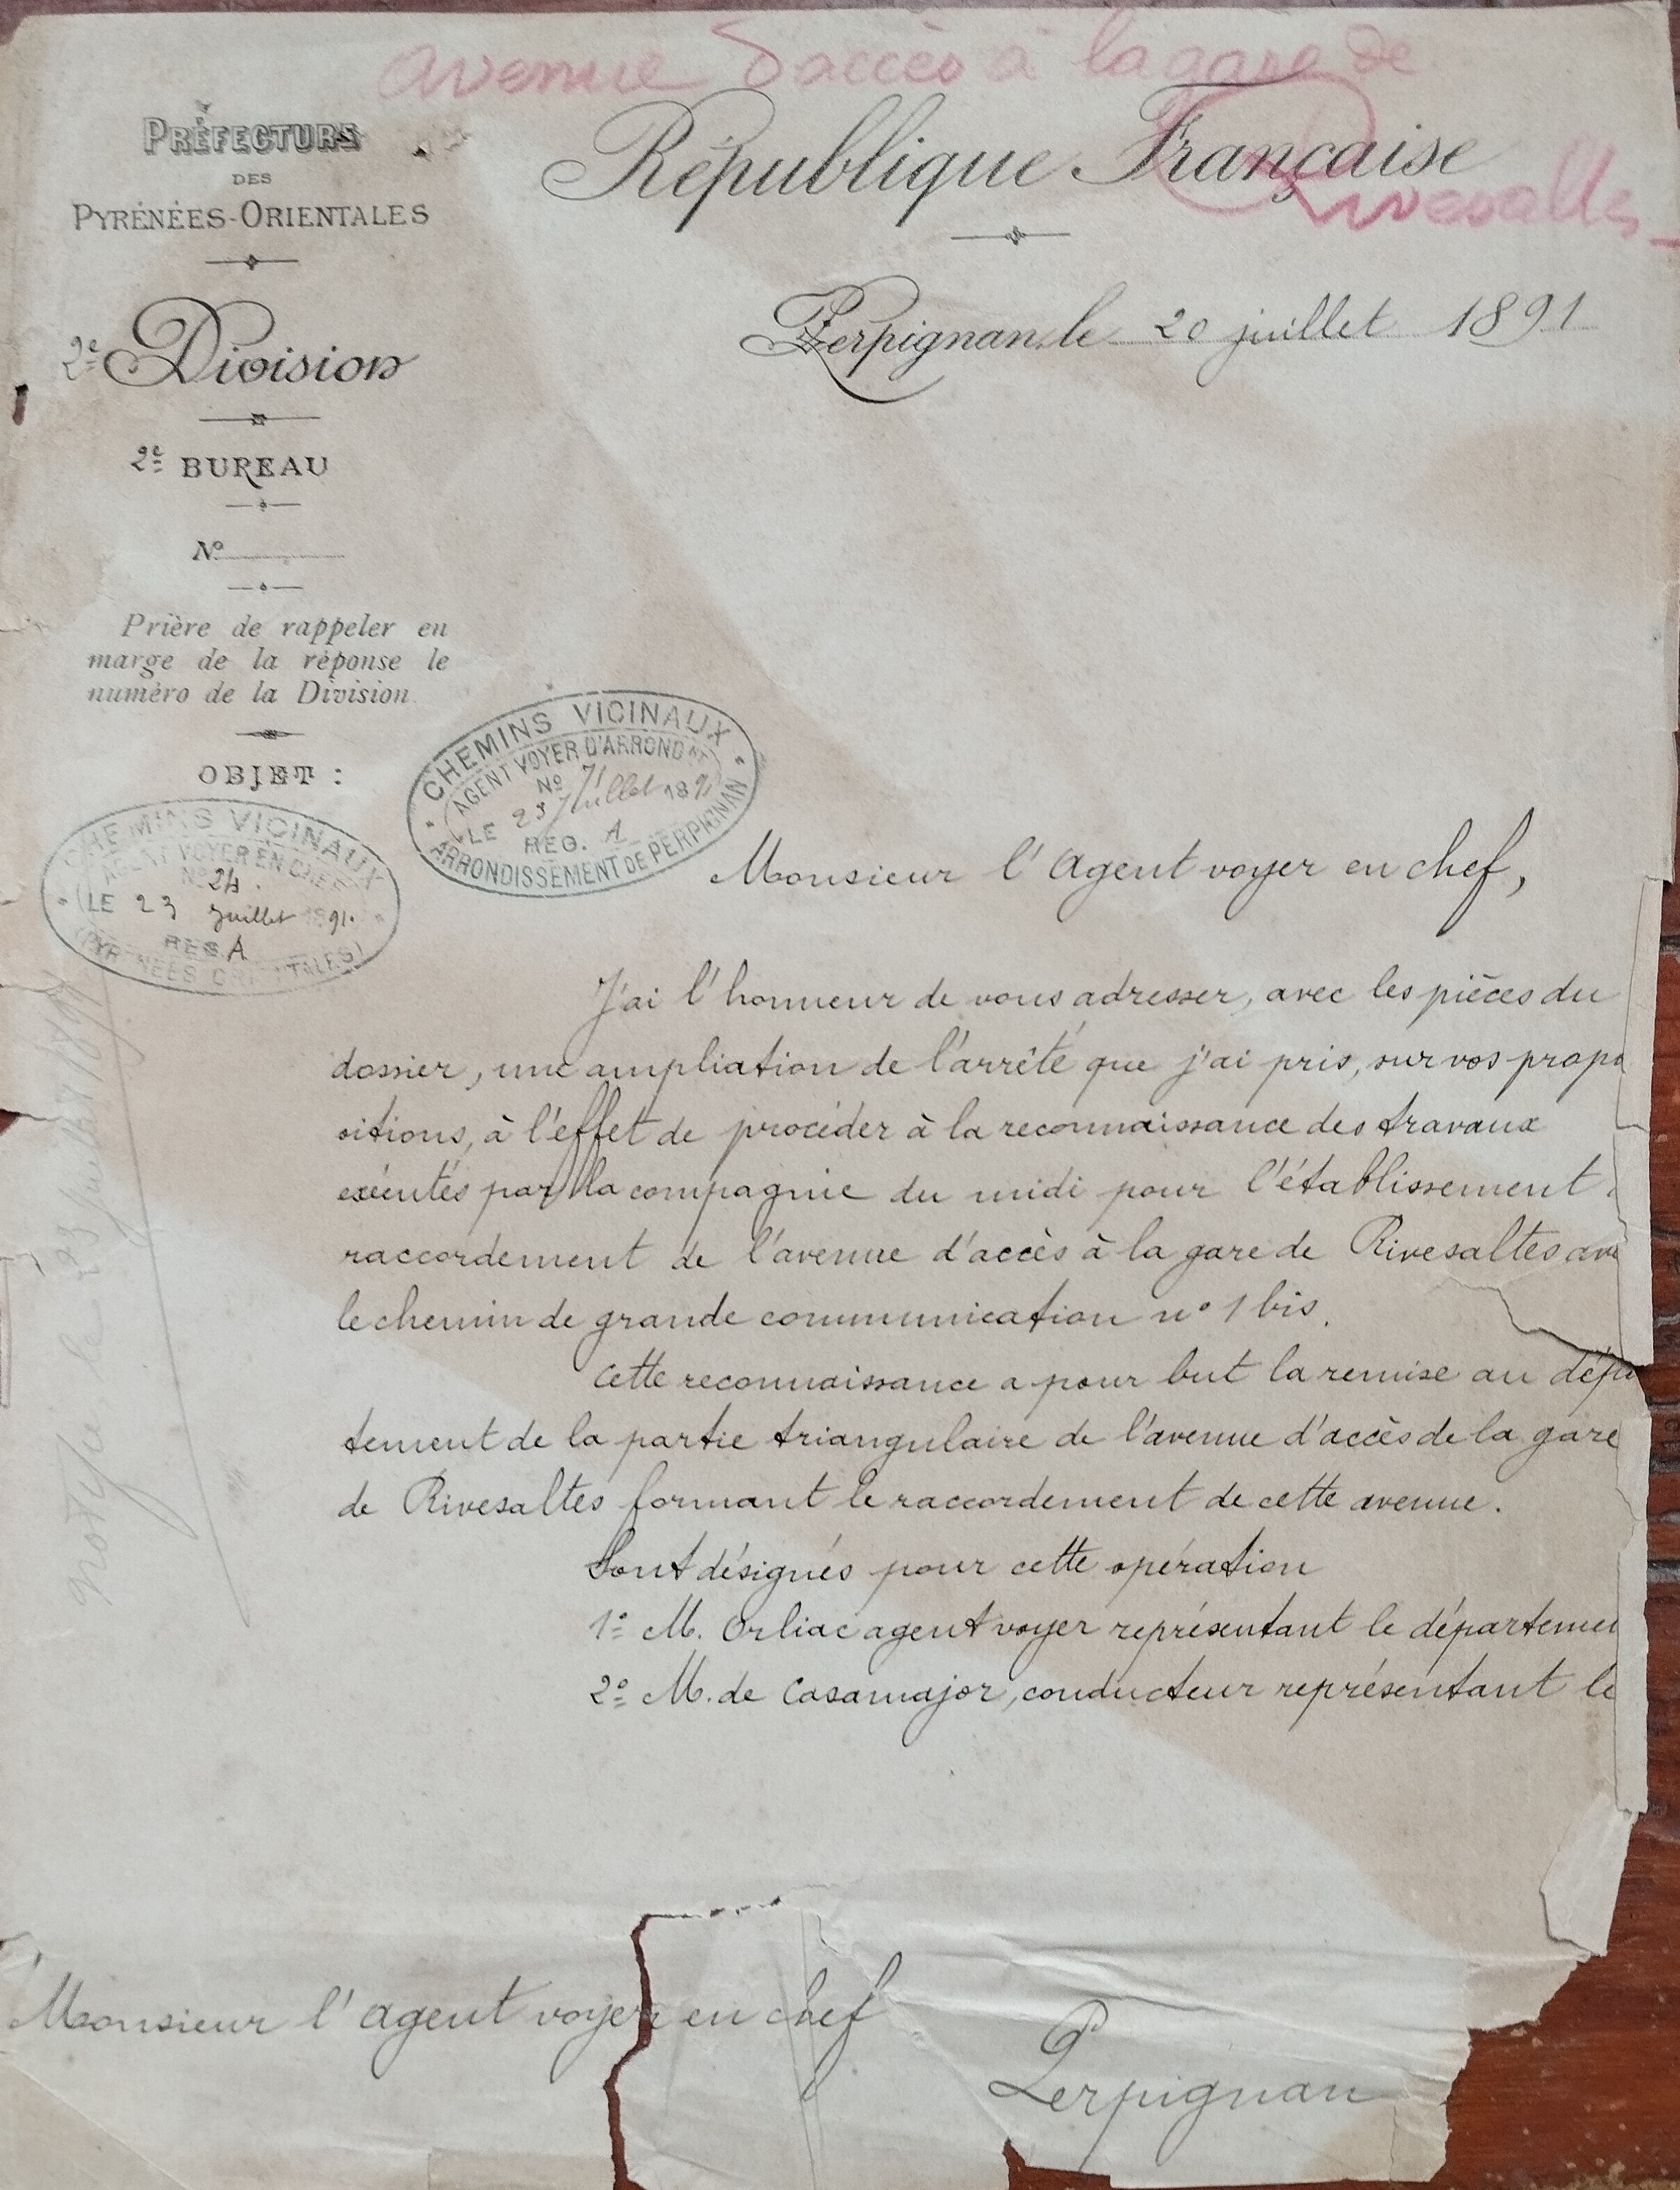 avenue d'accès à la gare de
Rivesaltes
PRÉFECTURE
DES
PYRÉNÉES-ORIENTALES
République Française
Perpignan, le 20 juillet 1891
2e Division
2e BUREAU
No
Prière de rappeler en
marge de la réponse le
numéro de la Division.
OBJET :
CHEMINS VICINAUX
AGENT VOYER D'ARRONDMT
No 71
LE 23 Juillet 1891
REG. A
ARRONDISSEMENT DE PERPIGNAN
CHEMINS VICINAUX
AGENT VOYER EN CHEF
No 24.
LE 23 Juillet 1891.
REG. A
(PYRÉNÉES ORIENTALES)
Monsieur l'agent voyer en chef,
J'ai l'honneur de vous adresser, avec les pièces du
dossier, une ampliation de l'arrêté que j'ai pris, sur vos propo
sitions, à l'effet de procéder à la reconnaissance des travaux
exécutés par la compagnie du midi pour l'établissement
raccordement de l'avenue d'accès à la gare de Rivesaltes ave
le chemin de grande communication no 1 bis.
Cette reconnaissance a pour but la remise au dépa
tement de la partie triangulaire de l'avenue d'accès de la gare
de Rivesaltes formant le raccordement de cette avenue.
Sont désignés pour cette opération
1o M. Orliac agent voyer représentant le départemen
2o M. de Casamajor, conducteur représentant le
Monsieur l'agent voyer en chef
Perpignan